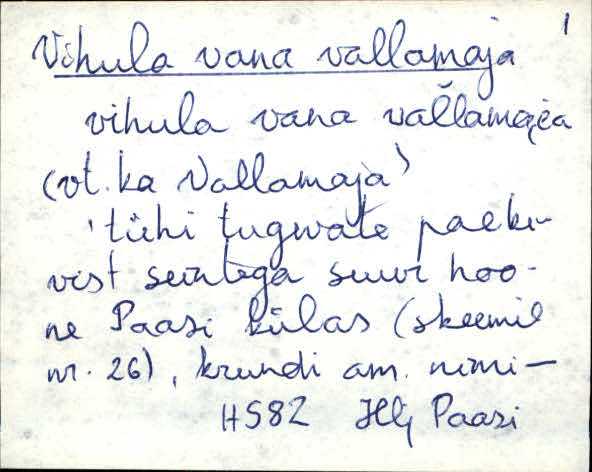 1
Vihula vana vallamaja
vihula vana val̆lamai̯a
(vt. ka Vallamaja)
'tühi tugevate paeki-
vist seintega suur hoo-
ne Paasi külas (skeemil
nr. 26), krundi am. nimi –
HS82 Hlj Paasi